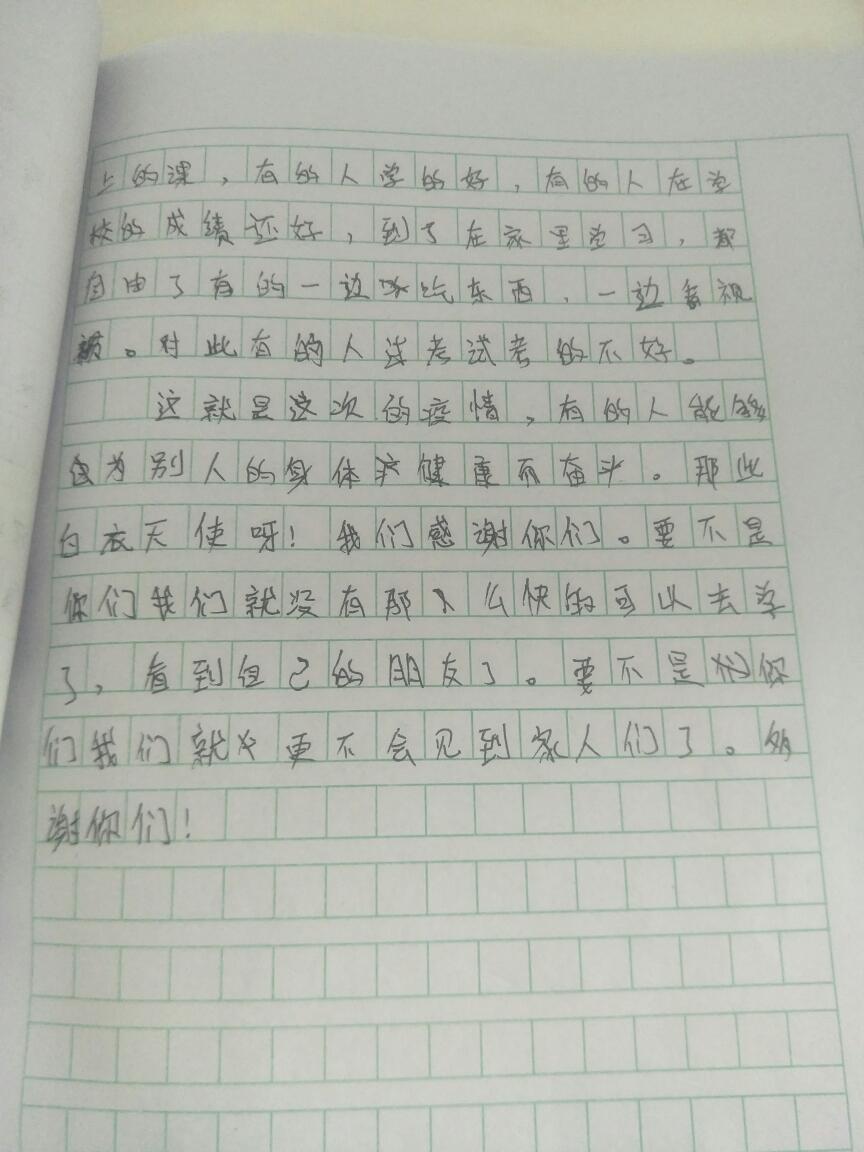 上的课，有的人学的好，有的人在学
校的成绩还好，到了在家里学习，都
自由了有的一边吃东西，一边看视
频。对此有的人连考试考的不好。
这就是这次的疫情，有的人能够
为别人的身体健康而奋斗。那些
白衣天使呀！我们感谢你们。要不是
你们我们就没有那么快的可以去学
了，看到自己的朋友了。要不是你
们我们就更不会见到家人们了。
谢你们！